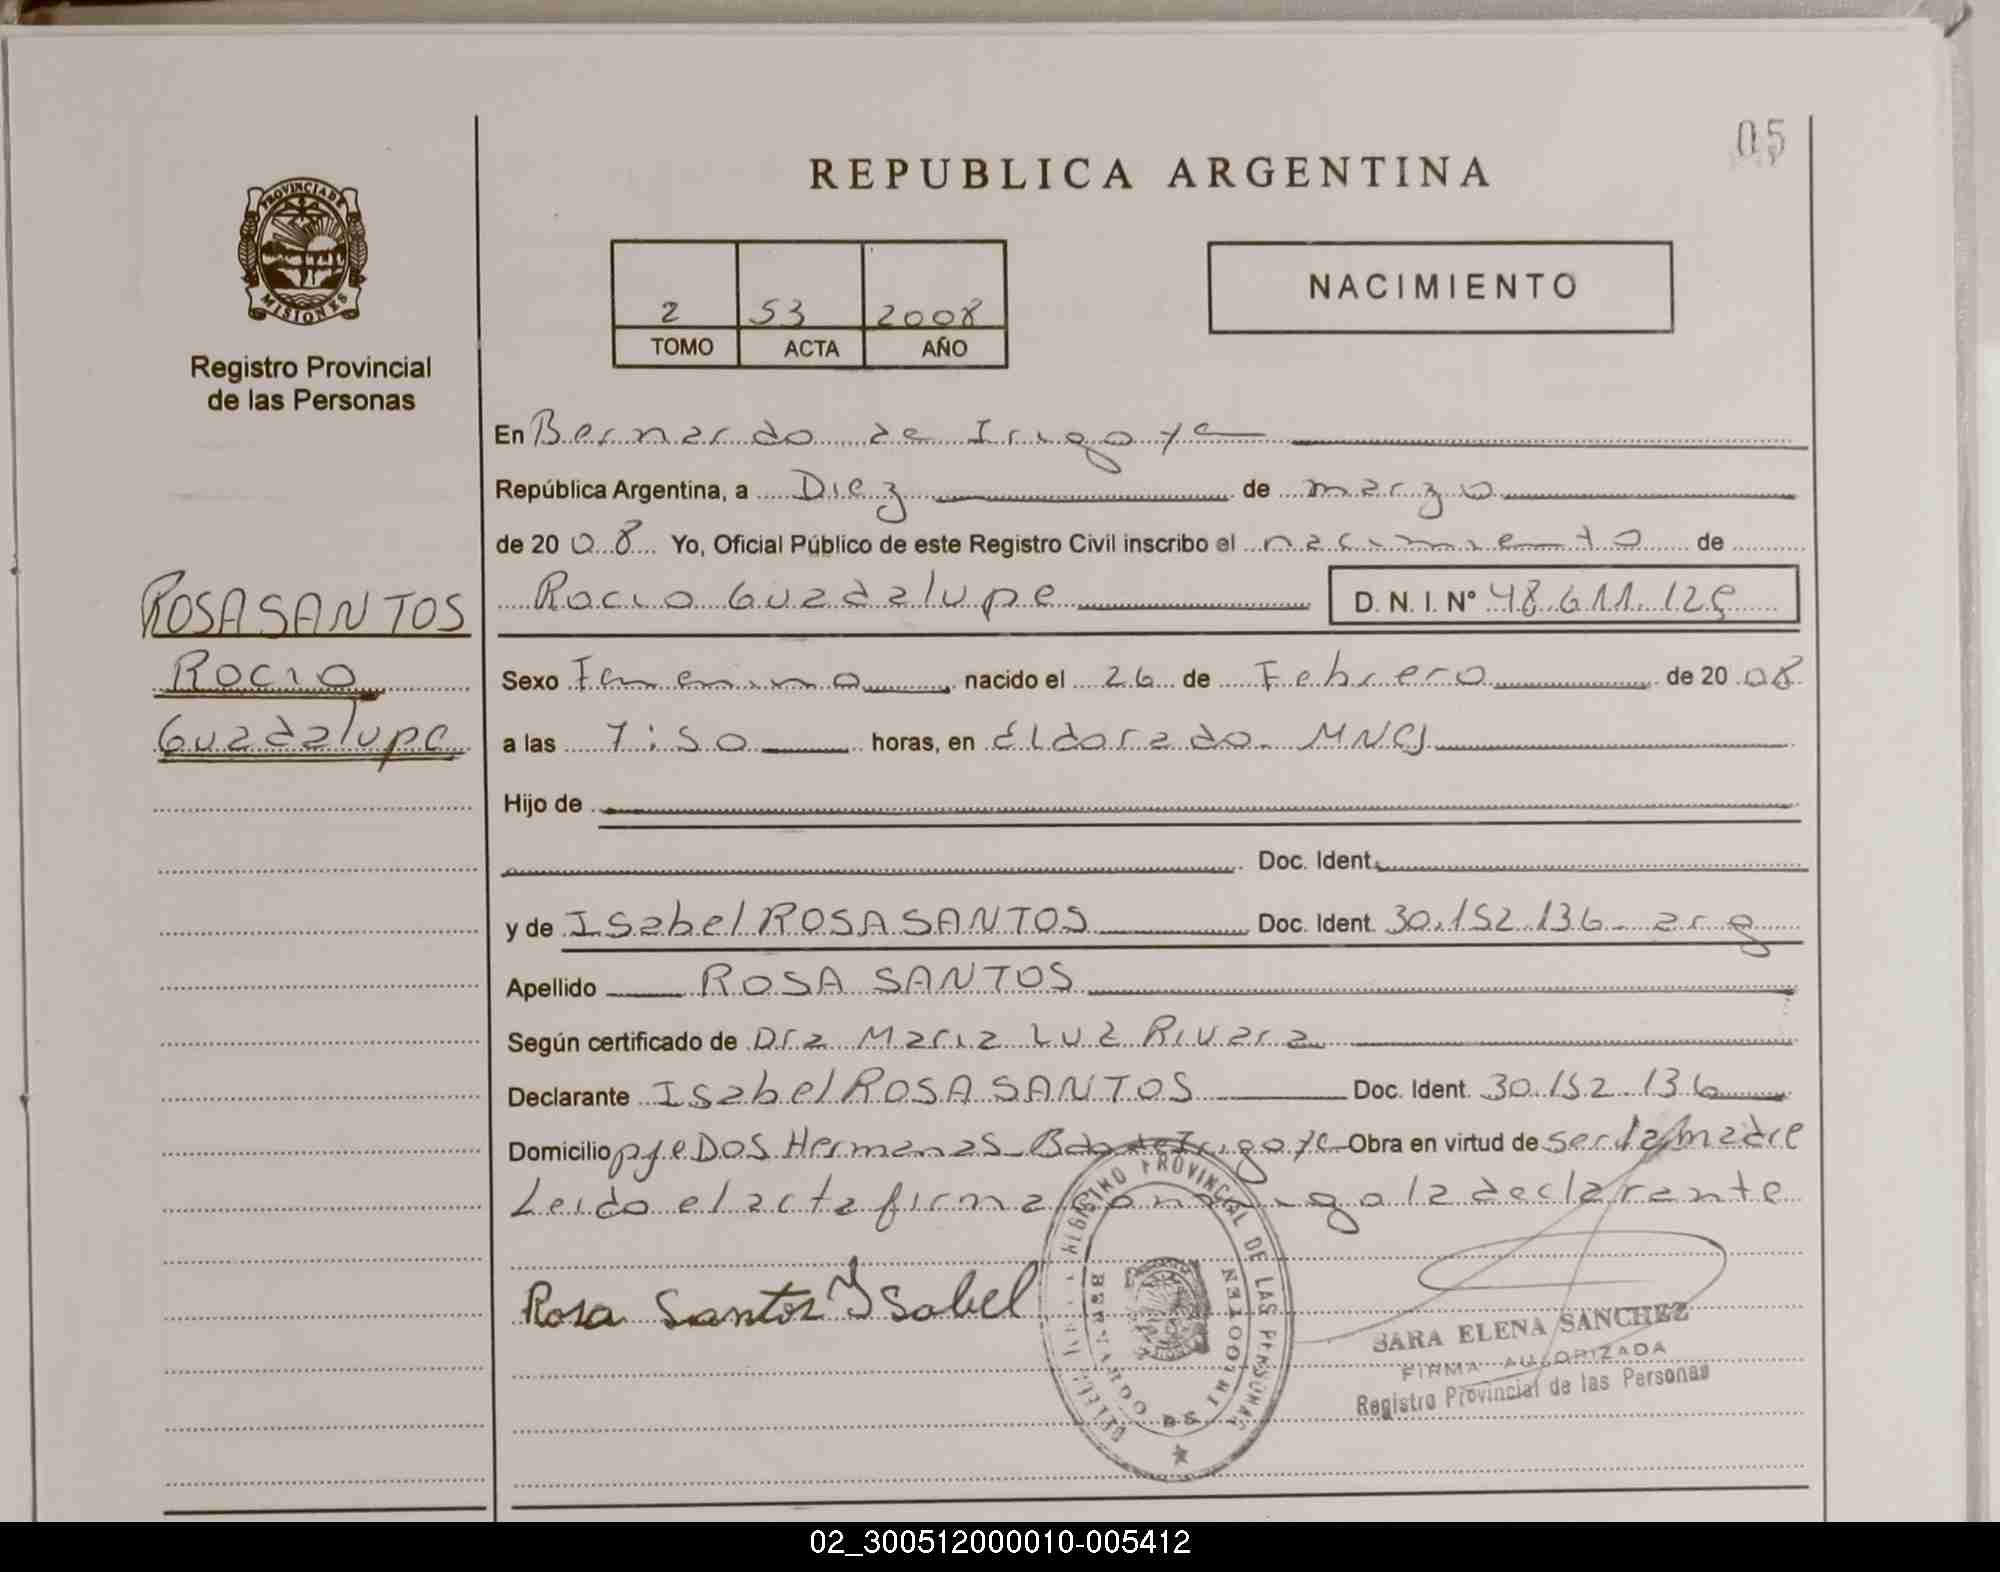 05
REPUBLICA ARGENTINA
PROVINCIA DE
MISIONES
Registro Provincial
de las Personas
2 53 2008
TOMO ACTA AÑO
NACIMIENTO
En Bernardo de Irigoye
República Argentina, a Diez de marzo
de 2008 Yo, Oficial Público de este Registro Civil inscribo el nacimiento de
Rocio Guadalupe D. N. I. Nº 48.611.129
ROSA SANTOS
Rocio
Guadalupe
Sexo Femenino nacido el 26 de Febrero de 2008
a las 7:50 horas, en Eldorado MNES
Hijo de
Doc. Ident.
y de Isabel ROSA SANTOS Doc. Ident. 30.152.136 - arg
Apellido ROSA SANTOS
Según certificado de Dra Maria Luz Rivara
Declarante Isabel ROSA SANTOS Doc. Ident. 30.152.136
Domicilio pje Dos Hermanas - Bdo de Irigoye Obra en virtud de ser la madre
Leido el acta firma conmigo la declarante
Rosa Santos Isabel
REGISTRO PROVINCIAL DE LAS PERSONAS
BERNARDO DE IRIGOYEN
SARA ELENA SANCHEZ
FIRMA AUTORIZADA
Registro Provincial de las Personas
02_300512000010-005412